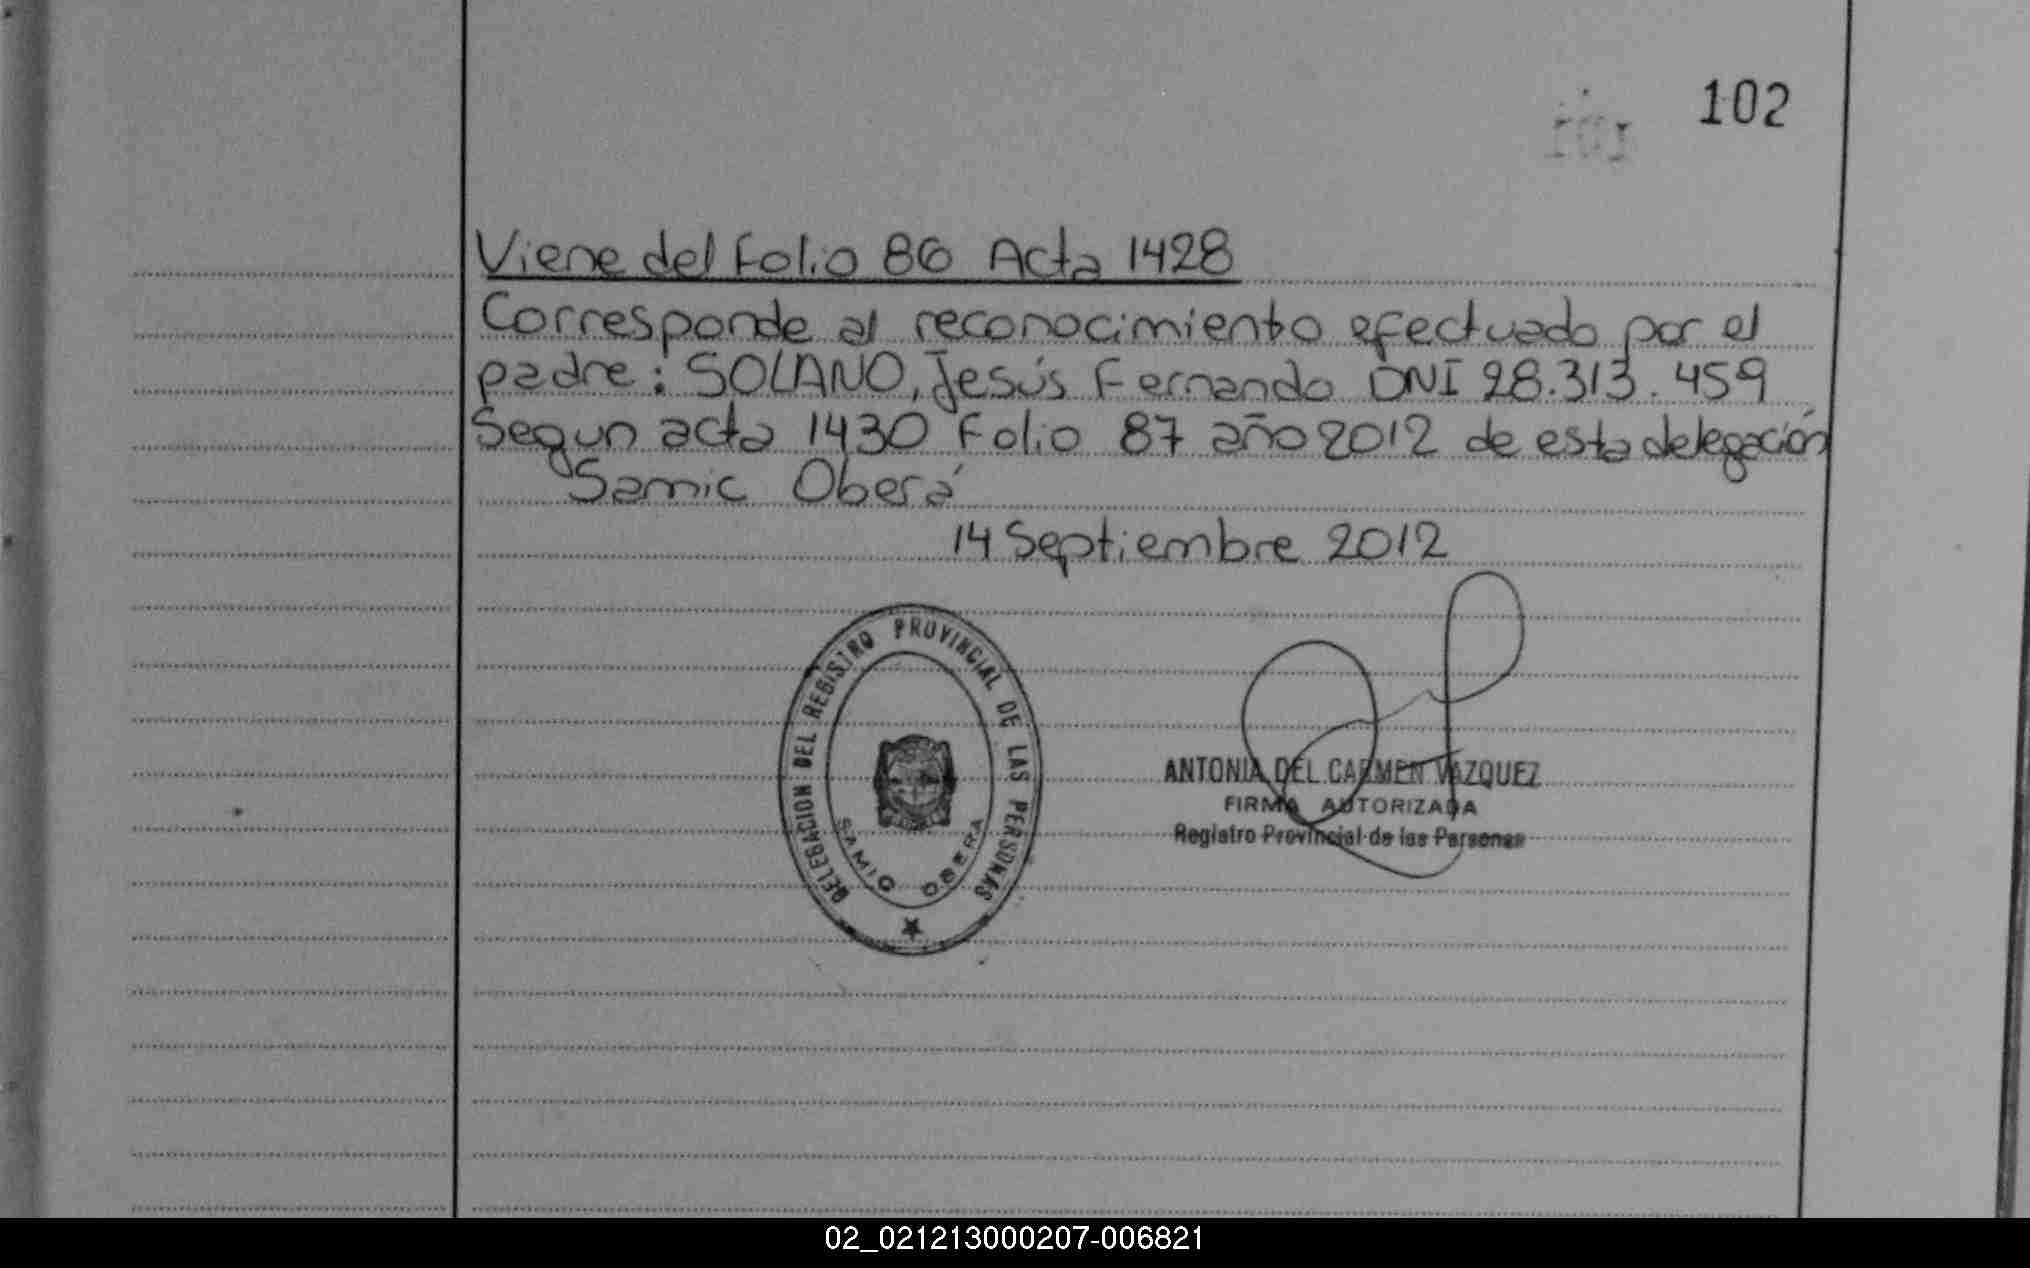 102
Viene del Folio 86 Acta 1428
Corresponde al reconocimiento efectuado por el
padre: SOLANO, Jesús Fernando DNI 28.313.459
Segun acta 1430 Folio 87 año 2012 de esta delegación
Samic Oberá
14 Septiembre 2012
DELEGACION DEL REGISTRO PROVINCIAL DE LAS PERSONAS
SAMIC OBERA
ANTONIA DEL CARMEN VAZQUEZ
FIRMA AUTORIZADA
Registro Provincial de las Personas
02_021213000207-006821